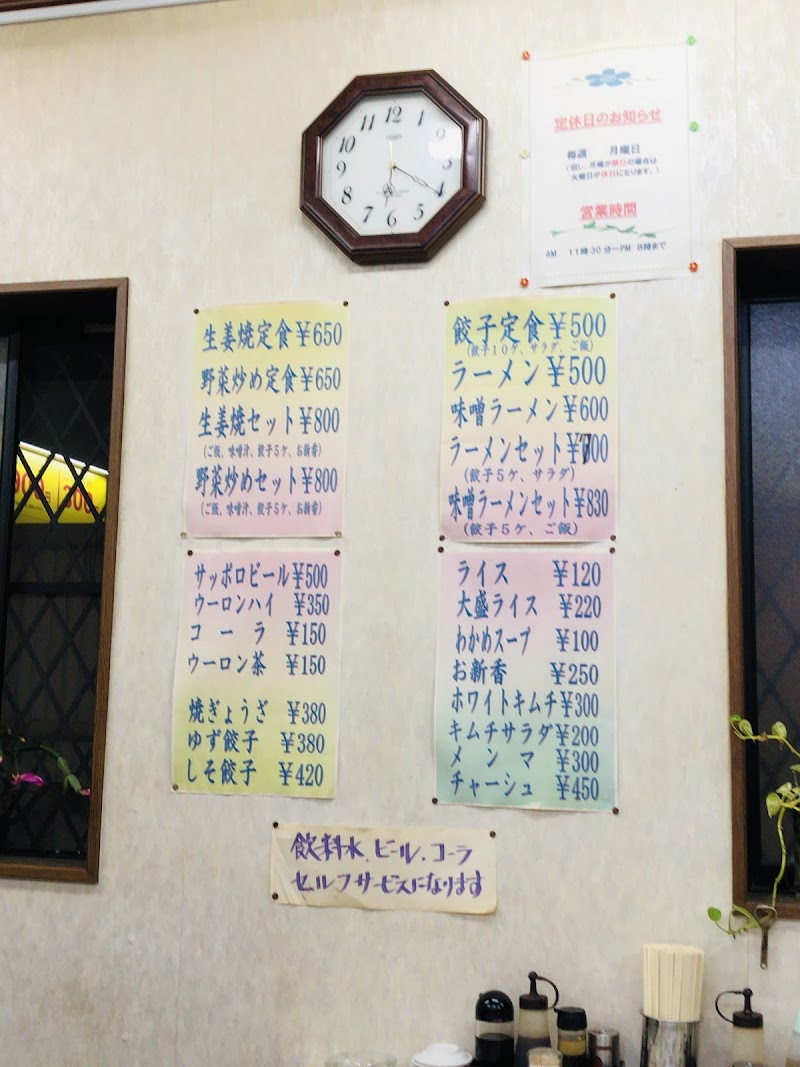 12
11
10
9
8
7
6
5
4
定休日のお知らせ
毎週 月曜日
(但し、月曜が祭日の場合は
火曜日が休日になります。)
営業時間
AM 11時30分〜PM 8時まで
生姜焼定食¥650
野菜炒め定食¥650
生姜焼セット¥800
(ご飯、味噌汁、餃子5ケ、お新香)
野菜炒めセット¥800
(ご飯、味噌汁、餃子5ケ、お新香)
餃子定食¥500
(餃子10ケ、サラダ、ご飯)
ラーメン¥500
味噌ラーメン¥600
ラーメンセット¥700
(餃子5ケ、サラダ)
味噌ラーメンセット¥830
(餃子5ケ、ご飯)
サッポロビール¥500
ウーロンハイ ¥350
コーラ ¥150
ウーロン茶 ¥150
焼ぎょうざ ¥380
ゆず餃子 ¥380
しそ餃子 ¥420
ライス ¥120
大盛ライス ¥220
わかめスープ ¥100
お新香 ¥250
ホワイトキムチ¥300
キムチサラダ¥200
メンマ ¥300
チャーシュ ¥450
飲料水、ビール、コーラ
セルフサービスになります
300